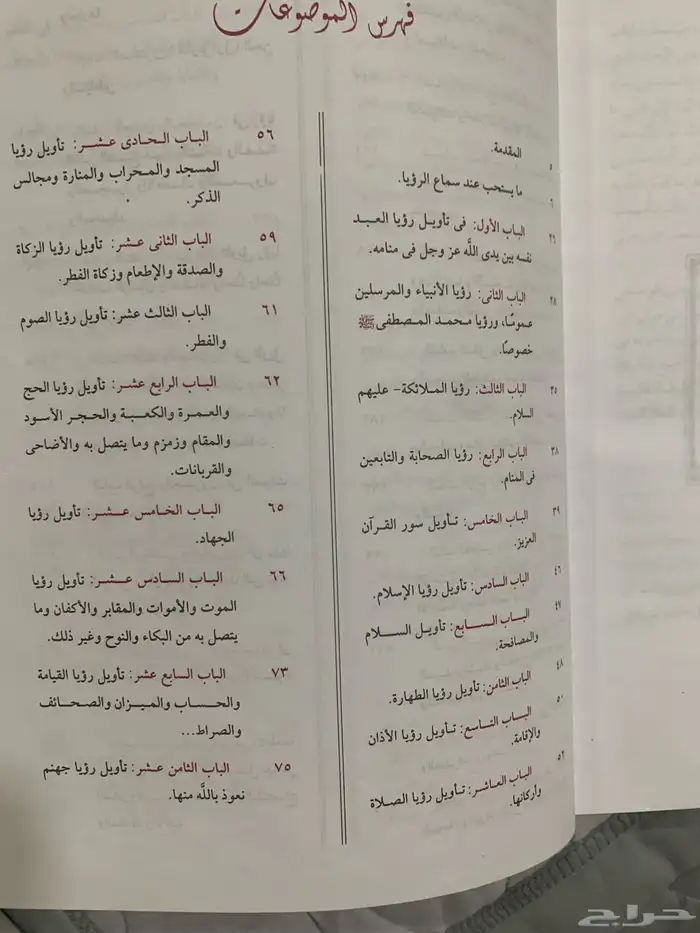 فهرس الموضوعات
المقدمة. ٥
ما يستحب عند سماع الرؤيا. ٦
الباب الأول: فى تأويل رؤيا العبد ٢٦
نفسه بين يدى اللَّه عز وجل فى منامه.
الباب الثانى: رؤيا الأنبياء والمرسلين ٢٨
عمومًا، ورؤيا محمد المصطفى ﷺ
خصوصًا.
الباب الثالث: رؤيا الملائكة- عليهم ٣٥
السلام.
الباب الرابع: رؤيا الصحابة والتابعين ٣٨
فى المنام.
الباب الخامس: تأويل سور القرآن ٣٩
العزيز.
الباب السادس: تأويل رؤيا الإسلام. ٤٦
الباب السابع: تأويل السلام ٤٧
والمصافحة.
الباب الثامن: تأويل رؤيا الطهارة. ٤٨
الباب التاسع: تأويل رؤيا الأذان ٥٠
والإقامة.
الباب العاشر: تأويل رؤيا الصلاة ٥٢
وأركانها.
الباب الحادى عشر: تأويل رؤيا ٥٦
المسجد والمحراب والمنارة ومجالس
الذكر.
الباب الثانى عشر: تأويل رؤيا الزكاة ٥٩
والصدقة والإطعام وزكاة الفطر.
الباب الثالث عشر: تأويل رؤيا الصوم ٦١
والفطر.
الباب الرابع عشر: تأويل رؤيا الحج ٦٢
والعمرة والكعبة والحجر الأسود
والمقام وزمزم وما يتصل به والأضاحى
والقربانات.
الباب الخامس عشر: تأويل رؤيا ٦٥
الجهاد.
الباب السادس عشر: تأويل رؤيا ٦٦
الموت والأموات والمقابر والأكفان وما
يتصل به من البكاء والنوح وغير ذلك.
الباب السابع عشر: تأويل رؤيا القيامة ٧٣
والحساب والميزان والصحائف
والصراط...
الباب الثامن عشر: تأويل رؤيا جهنم ٧٥
نعوذ باللَّه منها.
حراج